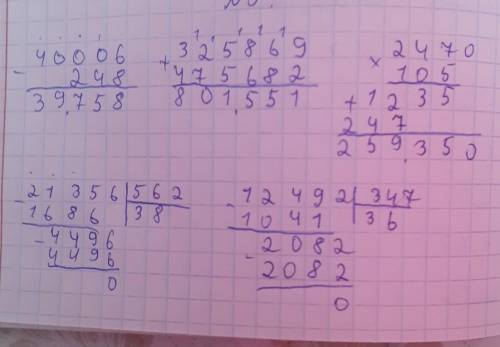 40006
- 248
39.758
325869
+ 475682
801.551
2470
× 105
+ 1235
247
259.350
- 21356 | 562
1686 | 38
- 4496
4496
0
- 12492 | 347
1041 | 36
- 2082
2082
0